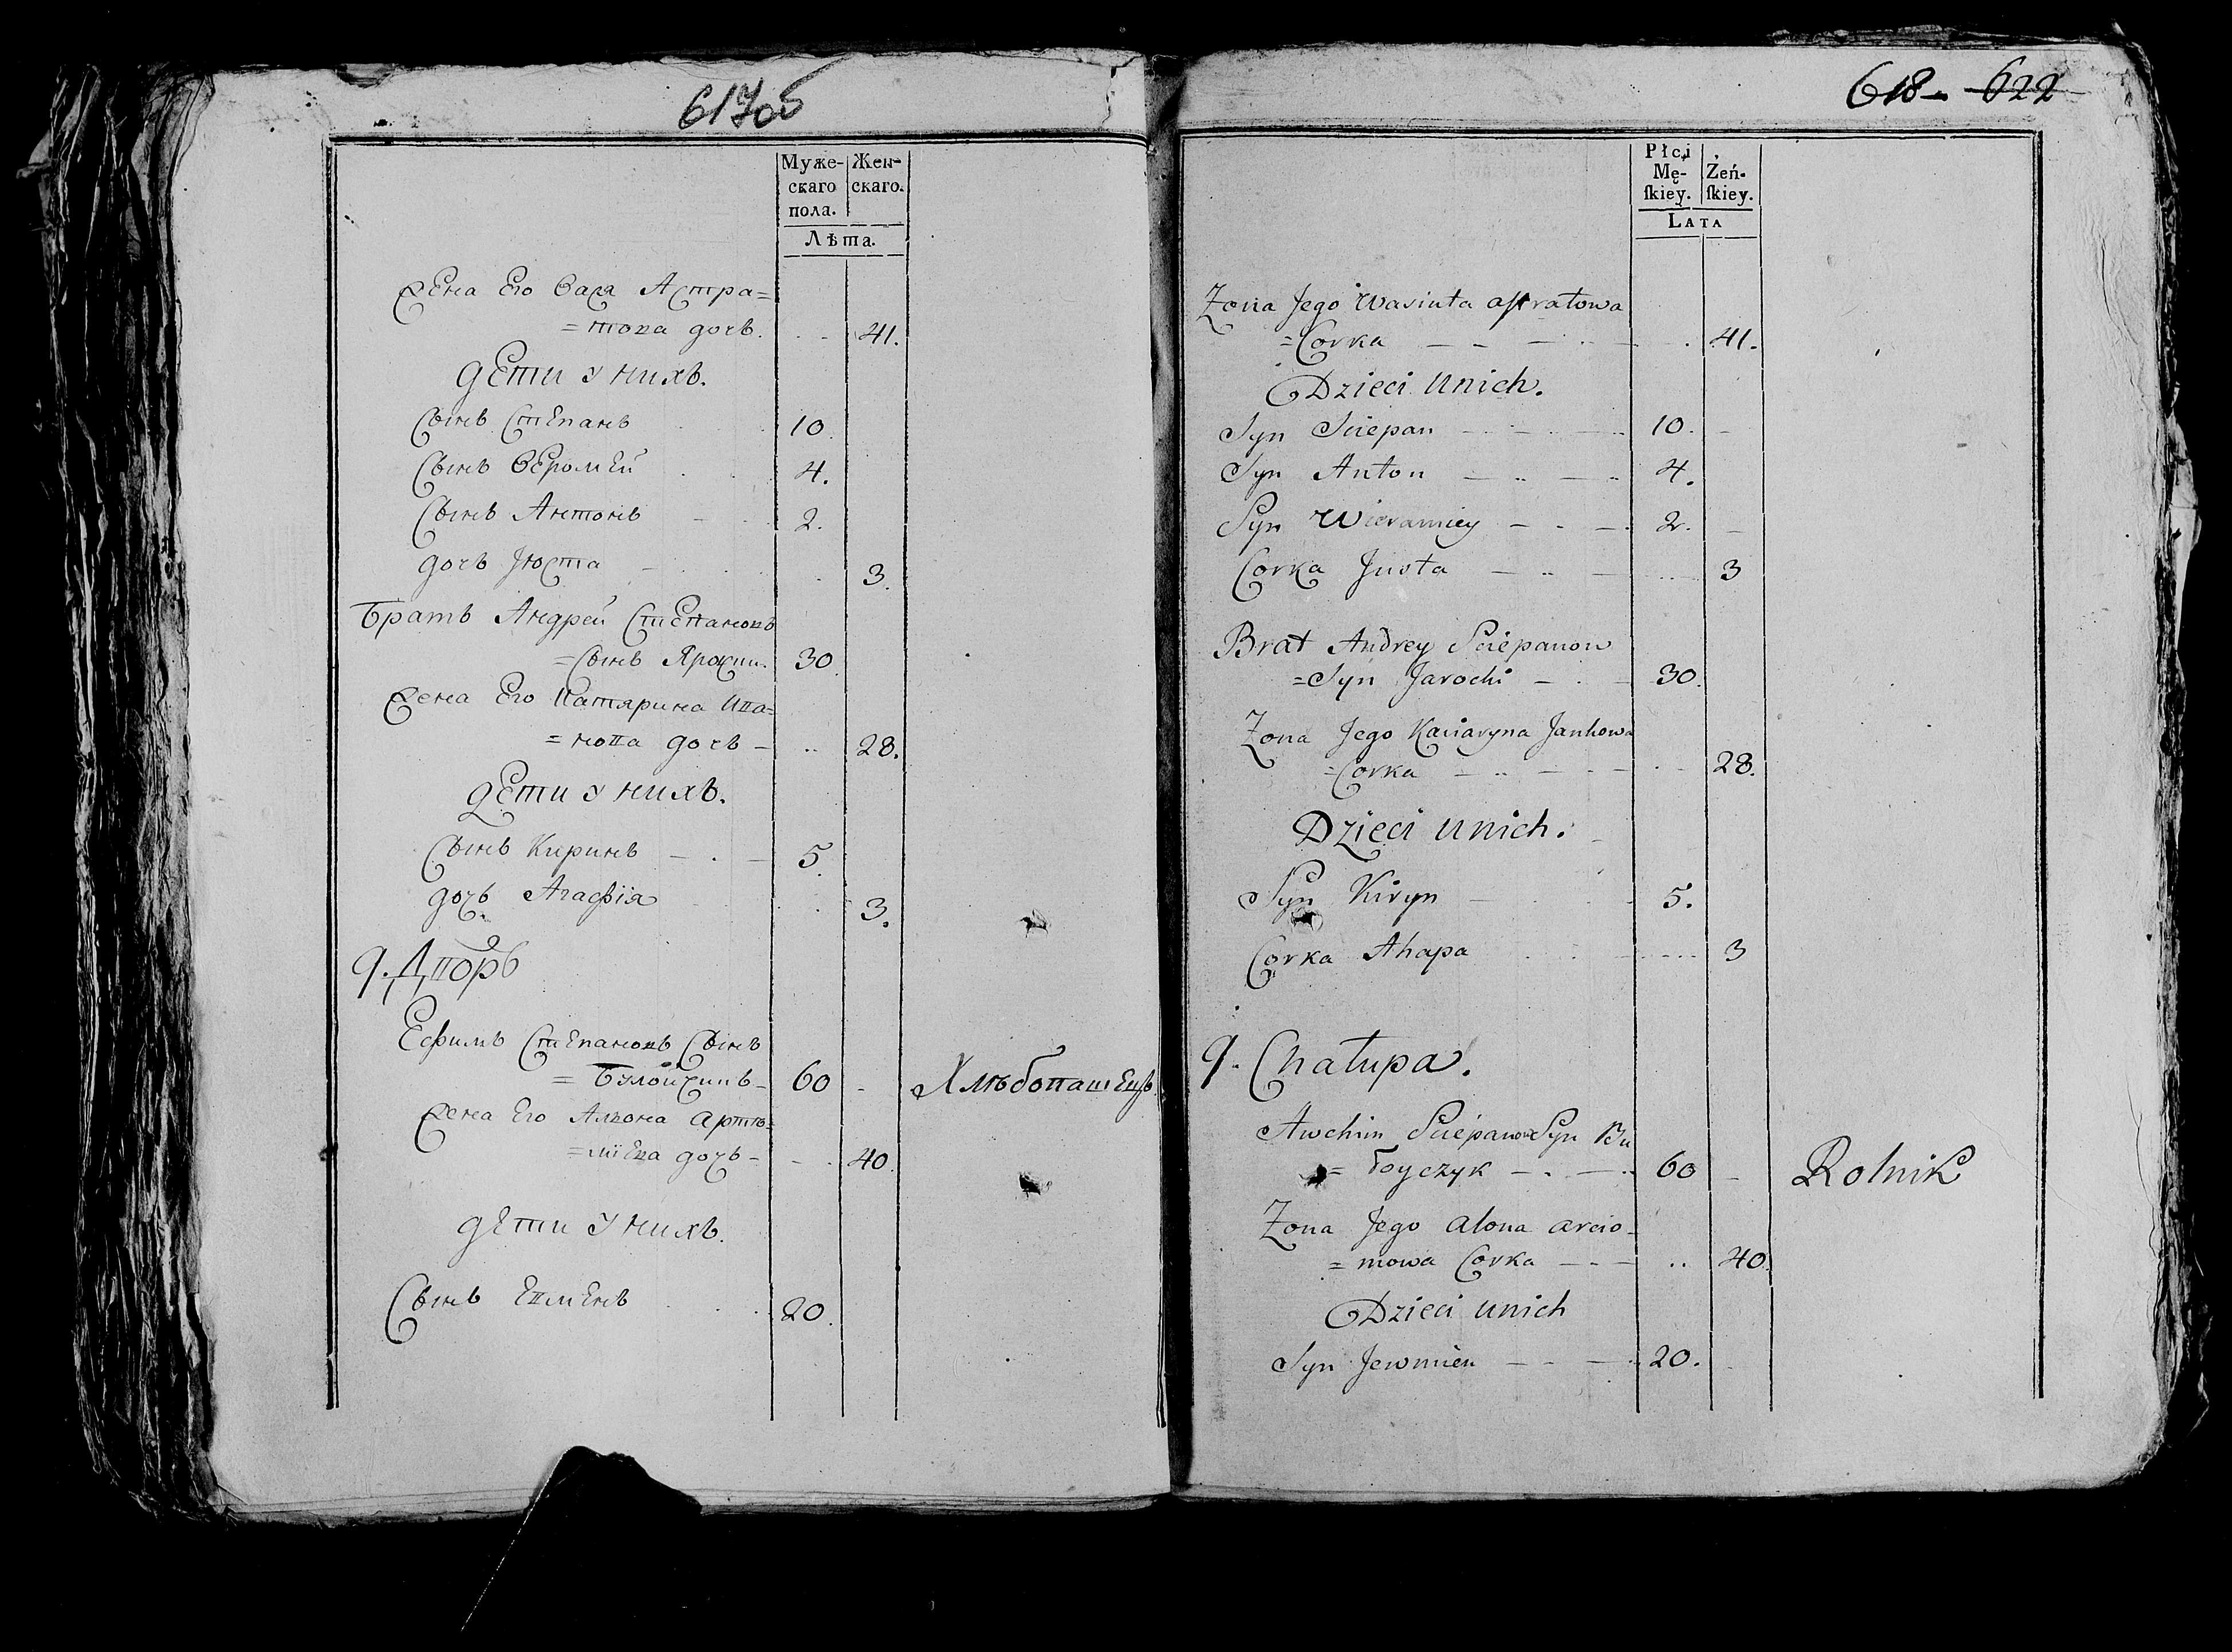 617об
Муже- Жен-
скаго скаго.
пола.
Лѣта.
Жена Его Вася Астра=
=това дочь. 41.
дЕти у нихъ.
Сынъ СтЕпанъ 10.
Сынъ ВЕромЕй 4.
Сынъ Антонъ 2.
дочь Юста 3.
Братъ Андрей СтЕпановъ
=Сынъ Ярохии. 30.
Жена Его Катярина Ива=
=нова дочь 28.
дЕти у нихъ.
Сынъ Киринъ 5.
дочь Агафія 3.
9. Дворъ
Ефимъ СтЕпановъ Сынъ
= Булойчикъ 60 ХлѣбопашЕцъ.
Жена Его Алюна Артѣ=
=міЕва дочь 40.
дЕти у нихъ.
Сынъ ЕвмЕнъ 20.
618 - 622
Płci
Mę- Żeń-
ſkiey. ſkiey.
LATA
Zona Jego Wasiuta astratowa
=Corka 41.
Dzieci unich.
Syn Sciepan 10.
Syn Anton 4.
Syn Wieramiey 2.
Corka Justa 3
Brat Andrey Sciepanow
=Syn Jarochi 30.
Zona Jego Kaciaryna Jankowa
=Corka 28.
Dzieci unich.
Syn Kiryn 5.
Corka Ahapa 3
9. Chałupa.
Awchim Sciepanow Syn Bu
= łoyczyk 60 Rolnik
Zona Jego alona arcio=
= mowa Corka 40.
Dzieci unich
Syn Jewmien 20.